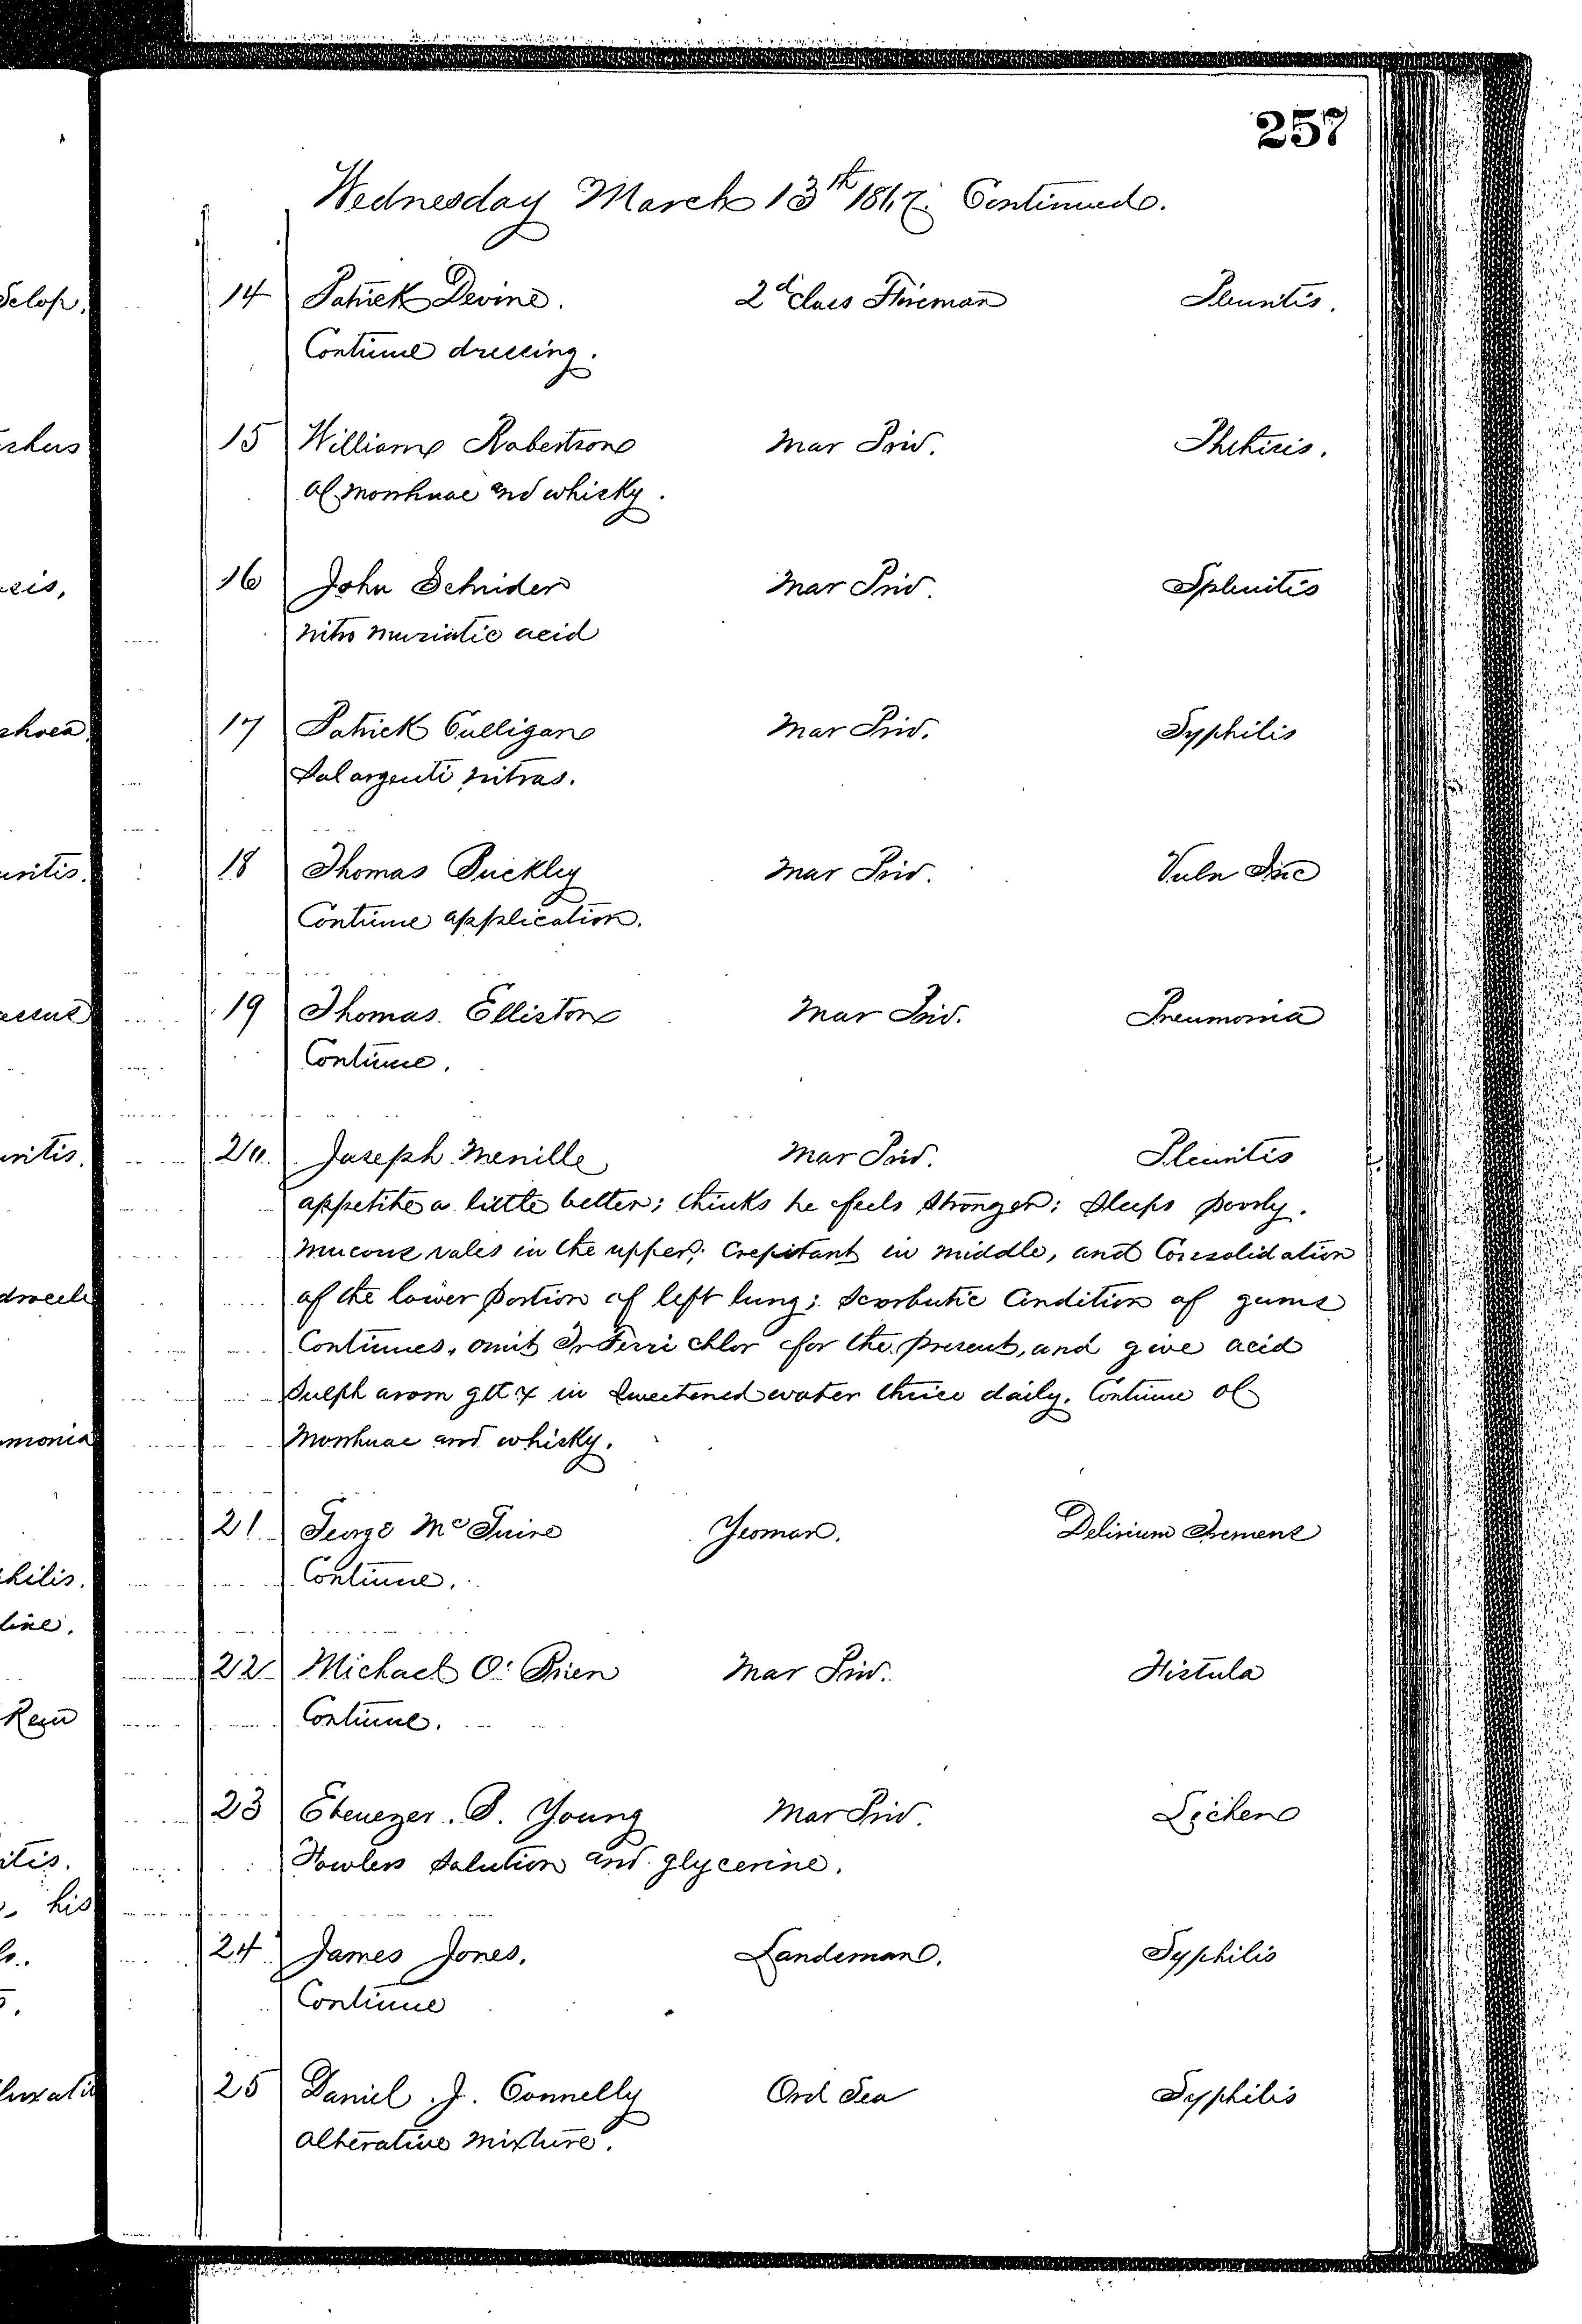 257
Wednesday March 13th 1867. Continued.
Selop.
14 Patrick Devine. 2d Class Fireman Pleuritis.
Continue dressing.
15 William Robertson Mar Priv. Phthisis.
Ol Morrhuae and whisky.
16 John Schrider Mar Priv. Splenitis
nitro muriatic acid
17 Patrick Culligan Mar Priv. Syphilis
Sol argenti nitras.
uritis. 18 Thomas Buckley Mar Priv. Vuln Inc
Continue application.
19 Thomas Elliston Mar Priv. Pneumonia
Continue.
uritis. 20 Joseph Menille Mar Priv. Pleuritis
appetite a little better; thinks he feels stronger; sleeps poorly.
Mucous rales in the upper; Crepitant in middle, and Consolidation
of the lower portion of left lung; Scorbutic Condition of gums
Continues, omit Tr Ferri chlor for the present, and give acid
Sulph arom gtt x in sweetened water thrice daily. Continue ol
monia Morrhuae and whisky.
21 George McGuire Yeoman. Delirium Tremens
philis. Continue.
line.
22 Michael O'Brien Mar Priv. Fistula
Continue.
23 Ebenezer. P. Young Mar Priv. Lichen
itis. Fowlers Solution and glycerine.
his
24 James Jones. Landsman. Syphilis
Continue
luxatio 25 Daniel. J. Connelly Ord Sea Syphilis
Alterative mixture.